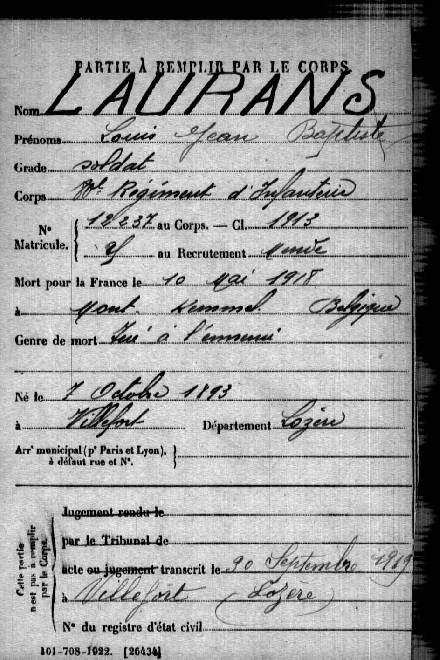 PARTIE À REMPLIR PAR LE CORPS.
Nom LAURANS
Prénoms Louis Jean Baptiste
Grade soldat
Corps Régiment d'Infanterie
N° Matricule. { 12237 au Corps. — Cl. 1913
au Recrutement Mende
Mort pour la France le 10 Mai 1918
à Mont Kemmel Belgique
Genre de mort Tué à l'ennemi
Né le 7 Octobre 1893
à Villefort Département Lozère
Arrt municipal (pr Paris et Lyon), à défaut rue et N°. }
Cette partie n'est pas à remplir par le Corps.
Jugement rendu le
par le Tribunal de
acte ou jugement transcrit le Septembre 1919
à Villefort (Lozère)
N° du registre d'état civil
101-708-1922. [26434]